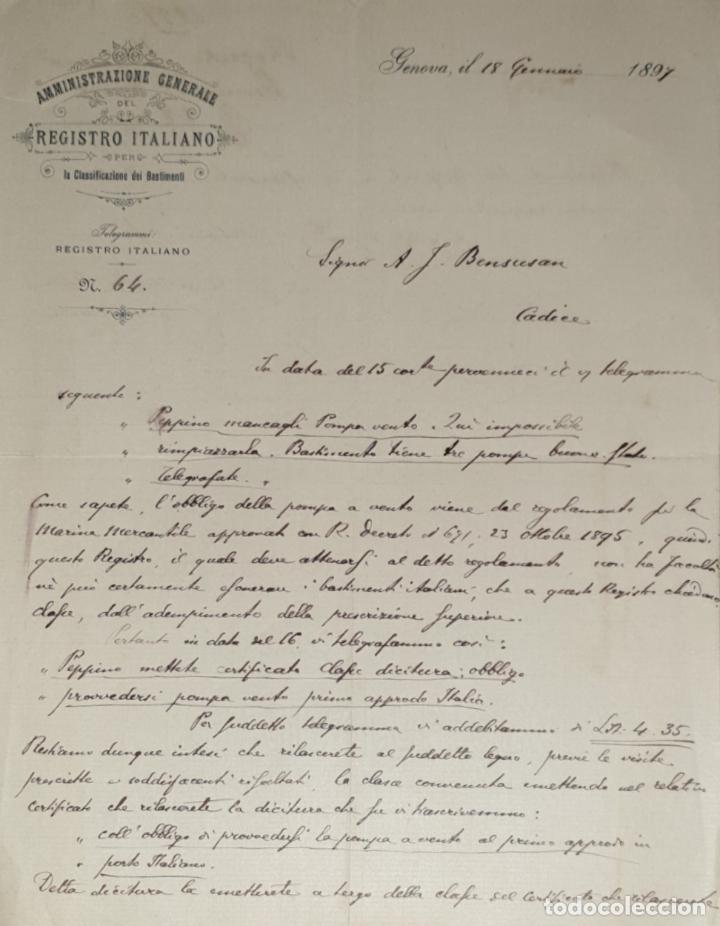 Genova, il 18 Gennaio 1897
AMMINISTRAZIONE GENERALE
DEL
REGISTRO ITALIANO
PER
la Classificazione dei Bastimenti
Telegrammi
REGISTRO ITALIANO
N. 64.
Signor A. J. Bensusan
Cadice
In data del 15 corte pervenneci il telegramma
seguente :
" Peppino mancagli Pompa vento. Qui impossibile
" rimpiazzarla. Bastimento tiene tre pompe buono stato.
" Telegrafate. "
Come sapete, l'obbligo della pompa a vento viene dal regolamento per la
Marina Mercantile approvato con R. Decreto N 671, 23 Ottobre 1895, quindi
questo Registro, il quale deve attenersi al detto regolamento, non ha facoltà
nè può certamente esonerare i bastimenti italiani, che a questo Registro chiedono
classe, dall'adempimento della prescrizione superiore.
Pertanto in data del 16, vi telegrafammo così :
" Peppino mettete certificato classe dicitura : obbligo
" provvedersi pompa vento primo approdo Italia.
Per suddetto telegramma vi addebitammo di 4. 35.
Restiamo dunque intesi che rilascerete al suddetto legno, previe le visite
prescritte e soddisfacenti risultati, la classe convenuta emettendo nel relativo
certificato che rilascerete la dicitura che qui vi trascrivemmo :
" coll'obbligo di provvedersi la pompa a vento al primo approdo in
" porto Italiano.
Detta dicitura la metterete a tergo della classe sul certificato che rilascerete
todocoleccion